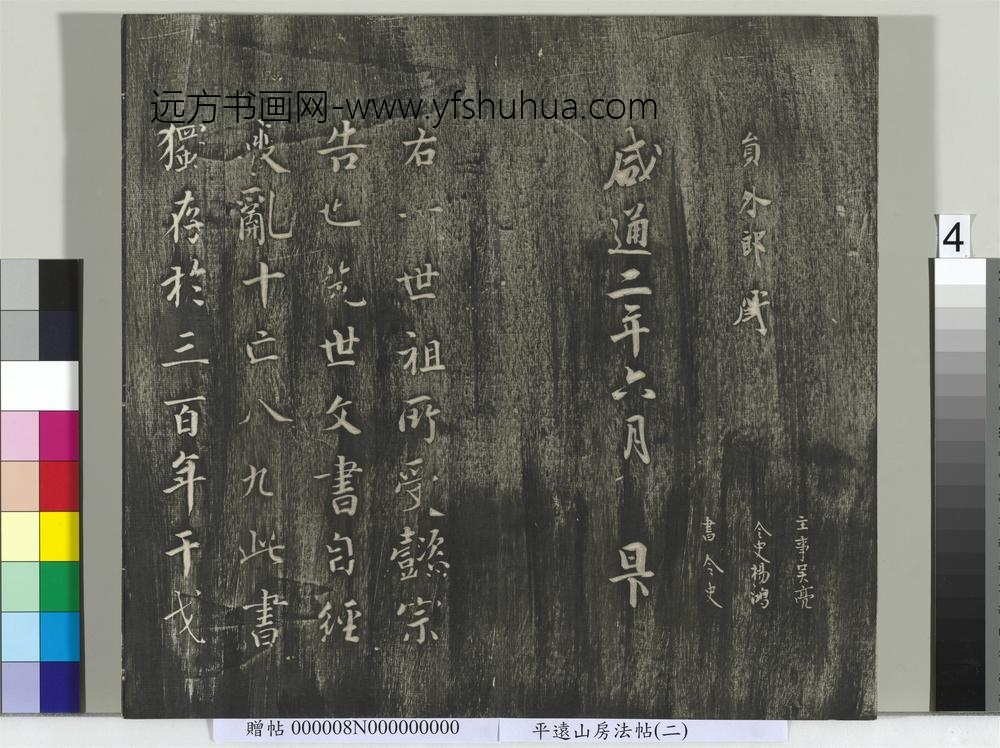 远方书画网-www.yfshuhua.com
主事吴亮
員外郎
令史楊鴻
書令史
咸通二年六月 日下
右一世祖所受懿宗
告也先世文書自經
變亂十亡八九此書
獨存於三百年干戈
4
贈帖 000008N000000000
平遠山房法帖(二)